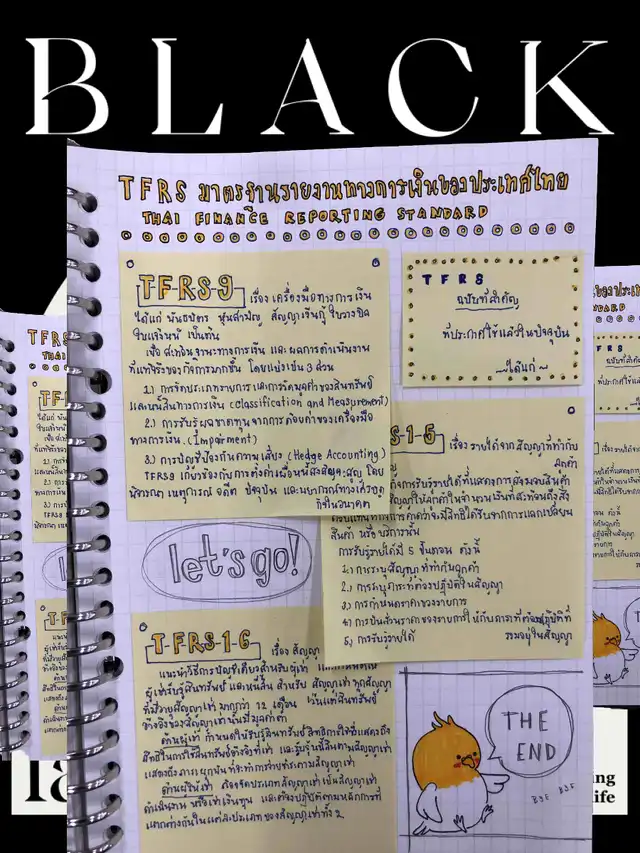 BLACK
TFRS มาตรฐานรายงานทางการเงินของประเทศไทย
THAI FINANCE REPORTING STANDARD
TFRS-9 เรื่อง เครื่องมือทางการเงิน
ได้แก่ พันธบัตร หุ้นสามัญ สัญญาเงินกู้ ใบวางบิล
ใบแจ้งหนี้ เป็นต้น
เพื่อสะท้อนฐานะทางการเงิน และ ผลการดำเนินงาน
ที่แท้จริงของกิจการมากขึ้น โดยแบ่งเป็น 3 ส่วน
1.) การจัดประเภทรายการ และการวัดมูลค่าของสินทรัพย์
และหนี้สินทางการเงิน (Classification and Measurement)
2.) การรับรู้ผลขาดทุนจากการด้อยค่าของเครื่องมือ
ทางการเงิน (Impairment)
3.) การบัญชีป้องกันความเสี่ยง (Hedge Accounting)
TFRS9 เกี่ยวข้องกับการตั้งค่าเผื่อหนี้สงสัยจะสูญ โดย
พิจารณา เหตุการณ์ อดีต ปัจจุบัน และพยากรณ์ทางเศรษฐ
กิจในอนาคต
TFRS
ฉบับที่สำคัญ
ที่ประกาศใช้แล้วในปัจจุบัน
~ได้แก่~
S-15 เรื่อง รายได้จากสัญญาที่ทำกับ
ลูกค้า
กิจการรับรู้รายได้ที่แสดงการส่งมอบสินค้า
สินค้า หรือ บริการนั้น
การรับรู้รายได้มี 5 ขั้นตอน ดังนี้
1.) การระบุสัญญาที่ทำกับลูกค้า
2.) การระบุภาระที่ต้องปฏิบัติในสัญญา
3.) การกำหนดราคาของรายการ
4.) การปันส่วนราคาของรายการให้กับภาระที่ต้องปฏิบัติที่
รวมอยู่ในสัญญา
5.) การรับรู้รายได้
let's go!
TFRS-16 เรื่อง สัญญา
แนะนำวิธีการบัญชีเดียวสำหรับผู้เช่า
ผู้เช่ารับรู้สินทรัพย์ และหนี้สิน สำหรับ สัญญาเช่าทุกสัญญา
ที่มีอายุสัญญาเช่ามากกว่า 12 เดือน เว้นแต่สินทรัพย์
อ้างอิงของสัญญาเช่านั้นมีมูลค่าต่ำ
ด้านผู้เช่า กำหนดให้รับรู้สินทรัพย์สิทธิการใช้ที่แสดงถึง
สิทธิในการใช้สินทรัพย์อ้างอิงที่เช่า และรับรู้หนี้สินตามสัญญาเช่า
แสดงถึงภาระผูกพันที่จะทำการจ่ายชำระตามสัญญาเช่า
ด้านผู้ให้เช่า ต้องจัดประเภทสัญญาเช่าเป็นสัญญาเช่า
ดำเนินงาน หรือเช่าเงินทุน และต้องปฏิบัติตามหลักการที่
แตกต่างกันในแต่ละประเภทของสัญญาเช่าทั้ง 2
THE
END
BYE BYE
ing
life